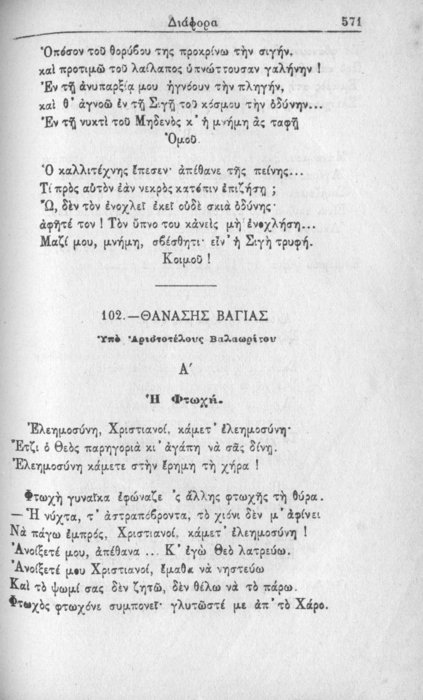 Διάφορα 571
Ὁπόσον τοῦ θορύβου της προκρίνω τὴν σιγήν,
καὶ προτιμῶ τοῦ λαίλαπος ὑπνώττουσαν γαλήνην !
Ἐν τῇ ἀνυπαρξίᾳ μου ἠγνόουν τὴν πληγήν,
καὶ θ' ἀγνοῶ ἐν τῇ Σιγῇ τοῦ κόσμου τὴν ὀδύνην...
Ἐν τῇ νυκτὶ τοῦ Μηδενὸς κ' ἡ μνήμη ἂς ταφῇ
Ὁμοῦ.
Ὁ καλλιτέχνης ἔπεσεν· ἀπέθανε τῆς πείνης...
Τί πρὸς αὐτὸν ἐὰν νεκρὸς κατόπιν ἐπιζήσῃ ;
Ὤ, δὲν τὸν ἐνοχλεῖ ἐκεῖ οὐδὲ σκιὰ ὀδύνης·
ἀφῆτέ τον ! Τὸν ὕπνο του κἀνεὶς μὴ ἐνοχλήσῃ...
Μαζί μου, μνήμη, σβέσθητι· εἶν' ἡ Σιγὴ τρυφή.
Κοιμοῦ !
102.—ΘΑΝΑΣΗΣ ΒΑΓΙΑΣ
Ὑπὸ Ἀριστοτέλους Βαλαωρίτου
Α'
Ἡ Φτωχή.
Ἐλεημοσύνη, Χριστιανοί, κάμετ' ἐλεημοσύνη·
Ἔτζι ὁ Θεὸς παρηγοριὰ κι' ἀγάπη νὰ σᾶς δίνῃ.
Ἐλεημοσύνη κάμετε στὴν ἔρημη τὴ χήρα !
Φτωχὴ γυναῖκα ἐφώναζε 'ς ἄλλης φτωχῆς τὴ θύρα.
— Ἡ νύχτα, τ' ἀστραπόβροντα, τὸ χιόνι δὲν μ' ἀφίνει
Νὰ πάγω ἐμπρός, Χριστιανοί, κάμετ' ἐλεημοσύνη !
Ἀνοίξετέ μου, ἀπέθανα ... Κ' ἐγὼ Θεὸ λατρεύω.
Ἀνοίξετέ μου Χριστιανοί, ἔμαθα νὰ νηστεύω
Καὶ τὸ ψωμί σας δὲν ζητῶ, δὲν θέλω νὰ τὸ πάρω.
Φτωχὸς φτωχόνε συμπονεῖ· γλυτῶστέ με ἀπ' τὸ Χάρο.